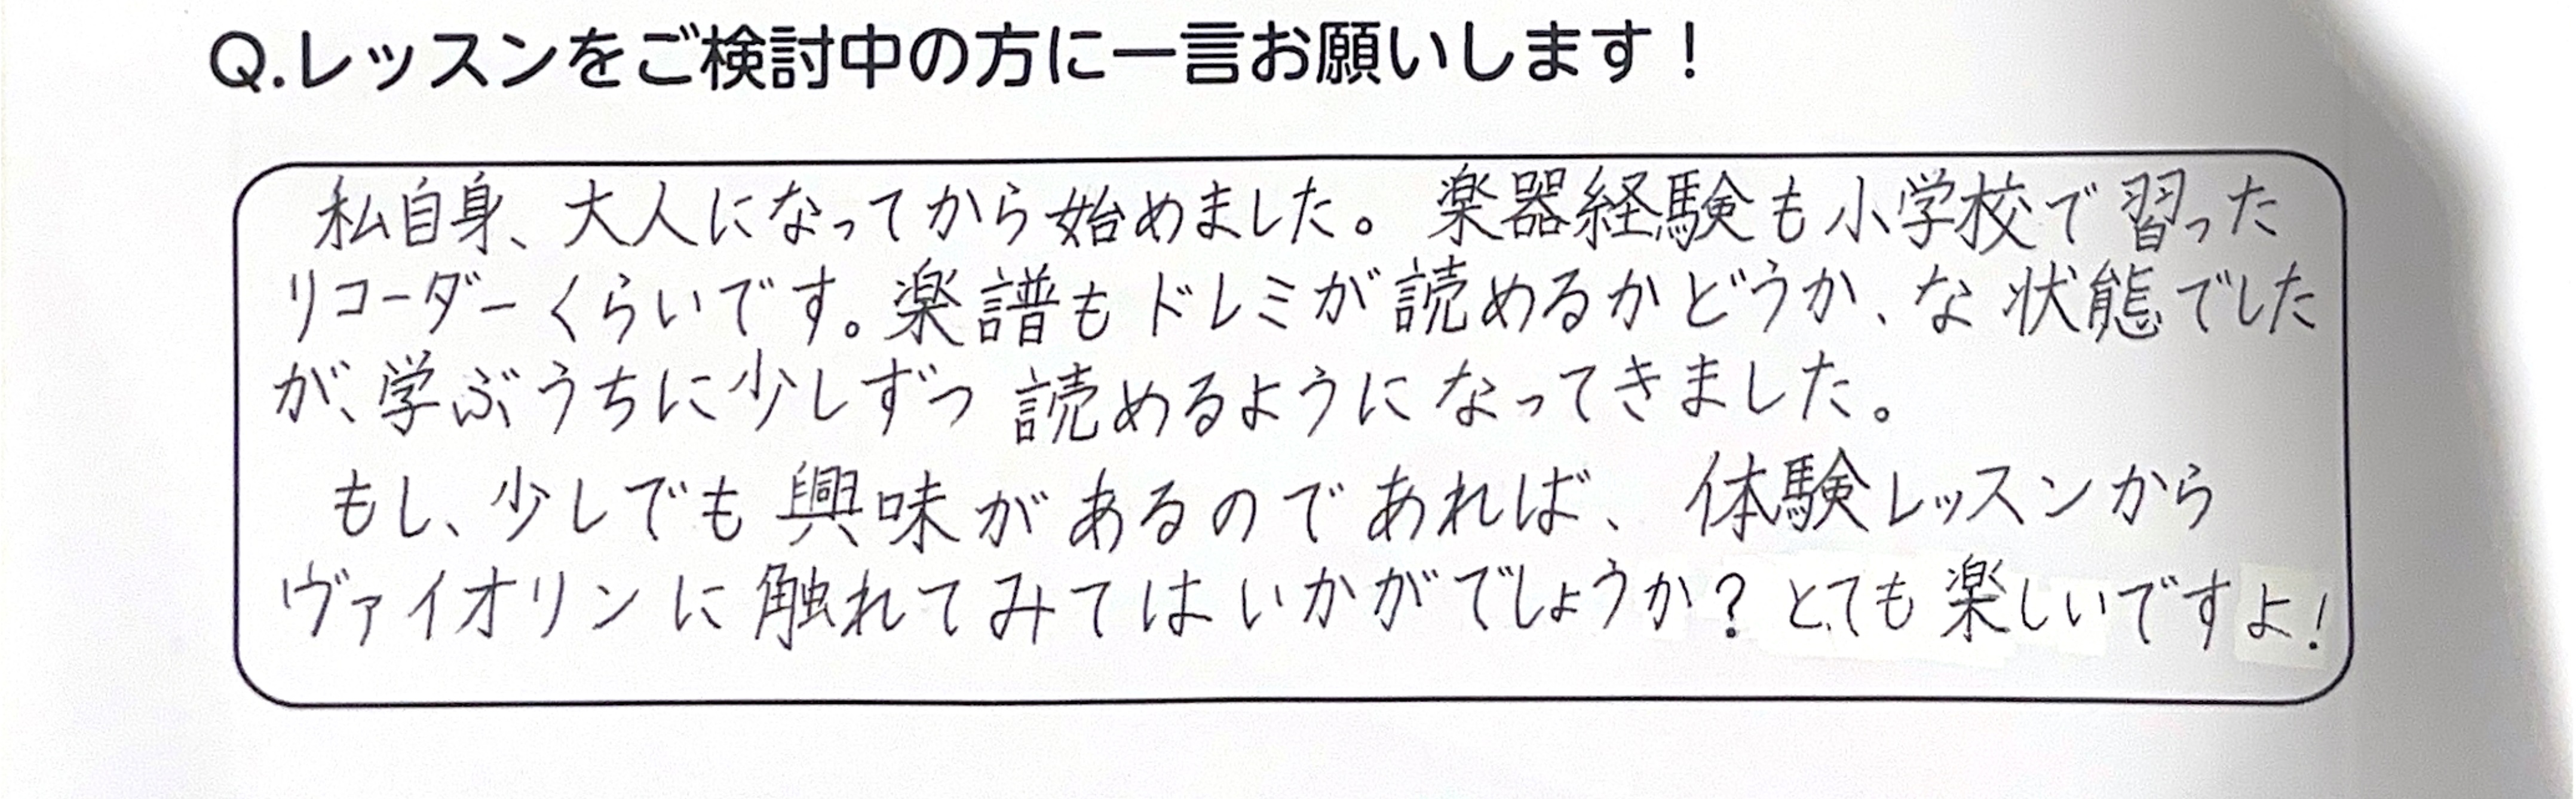 Q.レッスンをご検討中の方に一言お願いします！
私自身、大人になってから始めました。楽器経験も小学校で習った
リコーダーくらいです。楽譜もドレミが読めるかどうか、な状態でした
が、学ぶうちに少しずつ読めるようになってきました。
もし、少しでも興味があるのであれば、体験レッスンから
ヴァイオリンに触れてみてはいかがでしょうか？とても楽しいですよ！